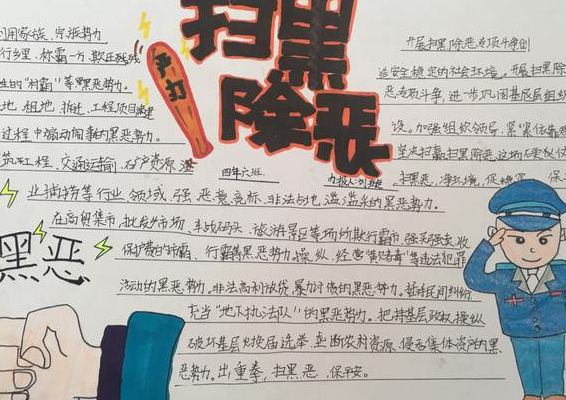 扫黑
除恶
严打
用家族、宗派势力
行乡里,称霸一方,欺压残
的"村霸"等黑恶势力。
地、租地、拆迁、工程项目
过程中煽动闹事的黑恶势力。
筑工程、交通运输、矿产资源、渔
业捕捞等行业、领域,强
竞标、非法占地、滥
的黑恶势力。
在商贸集市、批发市场、车站码头、旅游景区等场所欺行霸市、强买强卖、收
保护费的市霸、行霸等黑恶势力。操纵、经营"黄赌毒"等违法犯罪
活动的黑恶势力。非法高利放贷、暴力讨债的黑恶势力。插手民间纠纷
充当"地下执法队"的黑恶势力。把持基层政权、操纵
破坏基层换届选举、垄断农村资源、侵吞集体资
恶势力。出重拳,扫黑恶,保平安。
开展扫黑除恶专项斗争创
造安全稳定的社会环境。开展扫黑除
恶专项斗争,进一步巩固基层组织
设。加强组织领导,紧紧依靠
坚决打赢扫黑除恶这场
扫黑恶,净环境,促稳定,保
四年六班
办报人:刘
黑恶